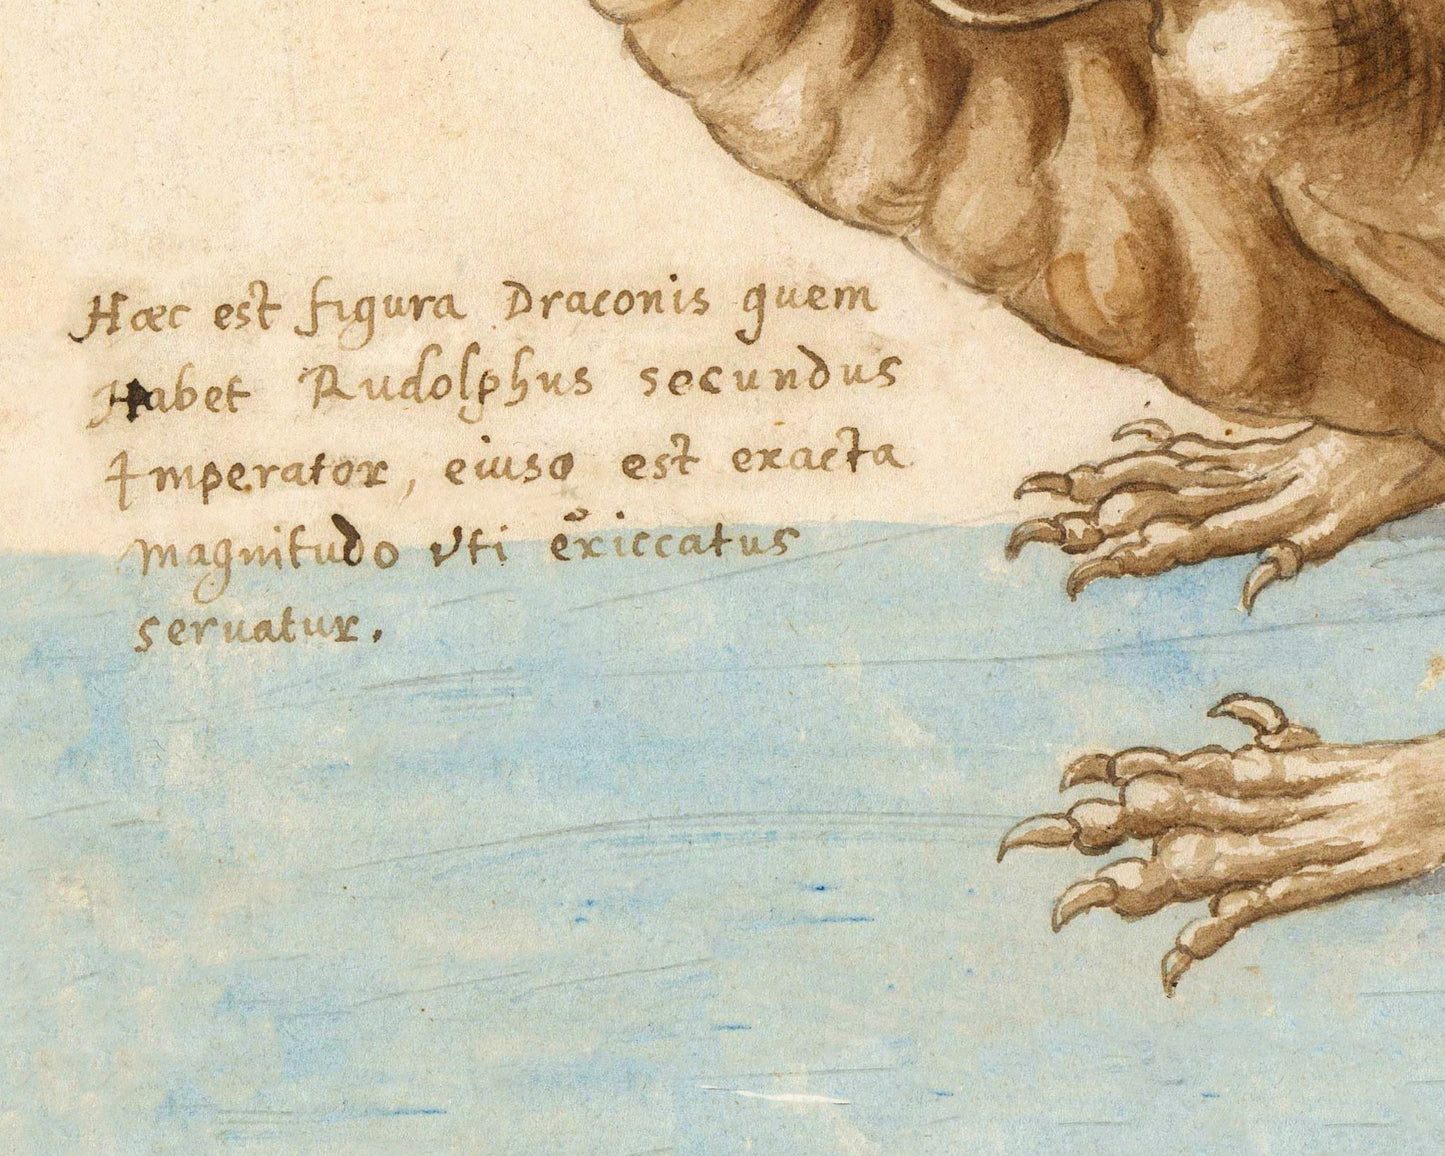 Hæc est figura Draconis quem
Habet Rudolphus secundus
Imperator, eiusq est exacta
magnitudo vti exiccatus
seruatur.